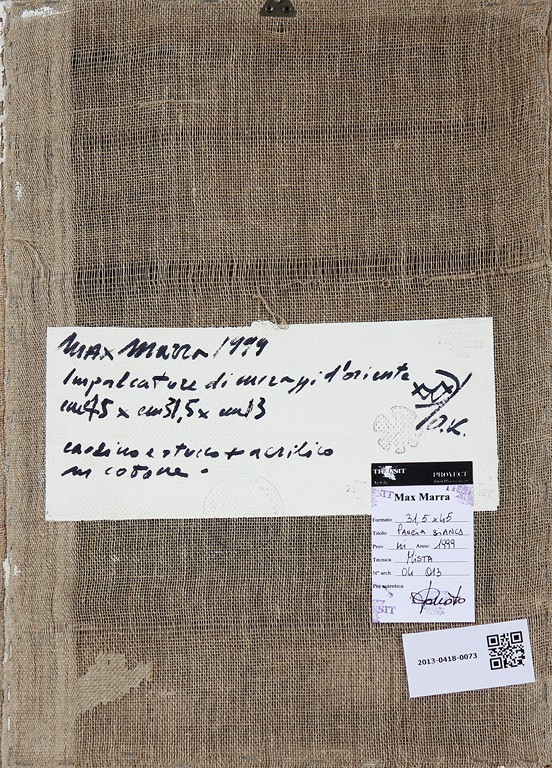 MAX MARRA 1999
Impalcature di miraggi d'oriente
cm45 x cm31,5 x cm13
O.K.
e stucco + acrilico
cotone.
TRANSIT PROYECT
Max Marra
Formato: 31,5x45
Titolo: PANCIA BIANCA
Prov. Anno: 1999
Tecnica: MISTA
N° arch. 04 013
Per autentica
2013-0418-0073